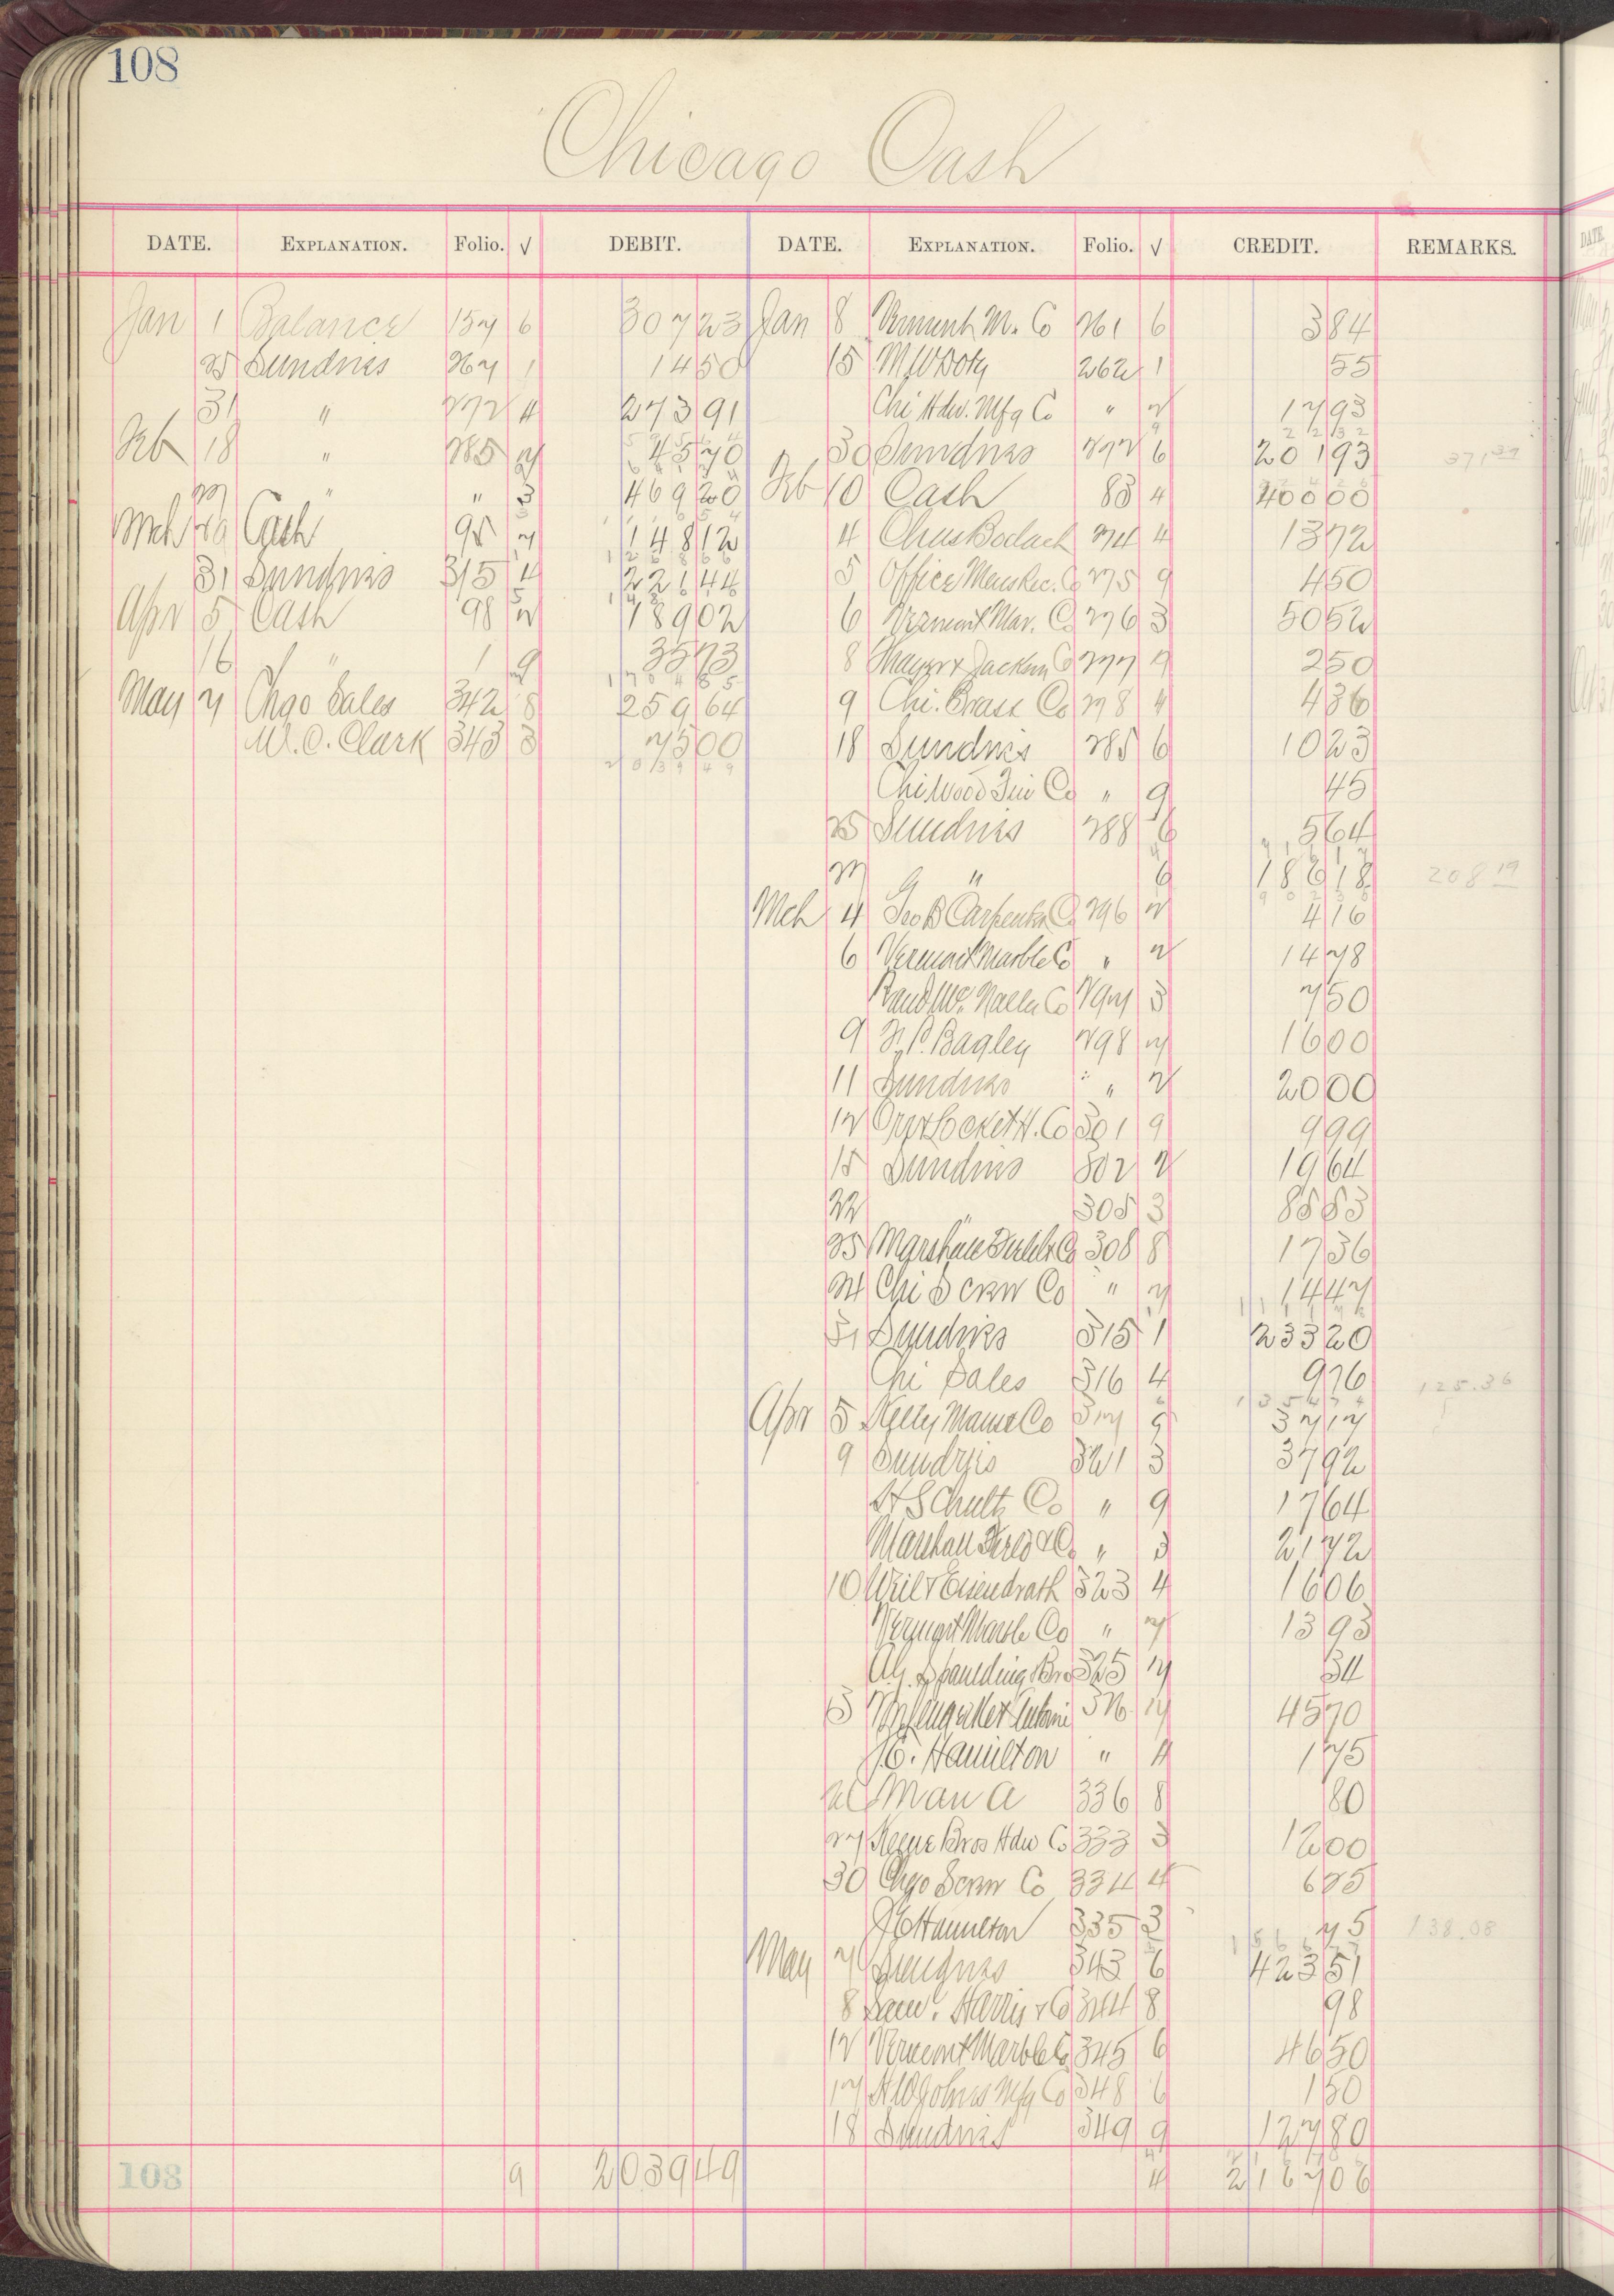 108
Chicago Cash
DATE. EXPLANATION. Folio. √ DEBIT. DATE. EXPLANATION. Folio. √ CREDIT. REMARKS.
Jan 1 Balance 157 6 307 23 Jan 8 Vermont M. Co 261 6 3 84
25 Sundries 267 1 14 50 15 M W Doty 262 1 55
31 " 272 4 273 91 Chi Hdw. Mfg Co " 2 17 93
Feb 18 " 285 7 45 70 30 Sundries 272 6 201 93 371 37
27 " " 3 469 20 Feb 10 Cash 83 4 400 00
Mch 29 Cash 95 7 148 12 4 Chas Bodach 274 4 13 72
31 Sundries 315 4 221 44 5 Office Mens Rec. Co 275 9 4 50
Apr 5 Cash 98 2 189 02 6 Vermont Mar. Co 276 3 50 52
16 " 1 9 35 73 8 Mayer & Jackson Co 277 9 2 50
May 7 Chgo Sales 342 8 259 64 9 Chi. Brass Co 278 4 4 36
W. C. Clark 343 3 75 00 18 Sundries 285 6 10 23
2 0 3 9 4 9
Chi Wood Fin Co " 9 45
25 Sundries 288 6 5 64
27 " 6 186 18 208 19
Mch 4 Geo B Carpenter Co 296 2 4 16
6 Vermont Marble Co " 2 14 78
Rand Mc. Nally Co 297 3 7 50
9 F. P. Bagley 298 7 16 00
11 Sundries " 2 20 00
12 Orr & Locket H. Co 301 9 9 99
15 Sundries 302 2 19 64
22 " 305 3 85 83
25 Marshall Field & Co 308 8 17 36
24 Chi Screw Co " 7 14 47
31 Sundries 315 1 233 20
Chi Sales 316 4 9 76 125.36
Apr 5 Kelly Mause Co 317 9 37 17
9 Sundries 321 3 37 92
H Schultz Co " 9 17 64
Marshall Field & Co " 3 21 72
10 Weil & Eisendrath 323 4 16 06
Vermont Marble Co " 7 13 93
A.G. Spaulding Bro 325 7 34
326 7 45 70
J.E. Hamilton " 4 1 75
Man A 336 8 80
27 Keene Bros Hdw Co 333 3 12 00
30 Chgo Screw Co 334 4 6 25
J E Hamilton 335 3 75 138.08
May 7 Sundries 343 6 423 51
8 Saml. Harris & Co 344 8 98
12 Vermont Marble Co 345 6 46 50
17 H W Johns Mfg Co 348 6 1 50
18 Sundries 349 9 127 80
108 9 2039 49 4 2167 06